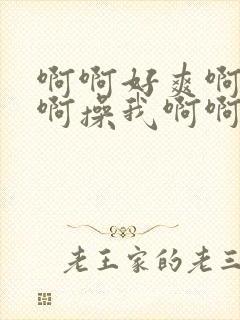 啊啊好爽啊
啊操我啊啊
老王家的老三